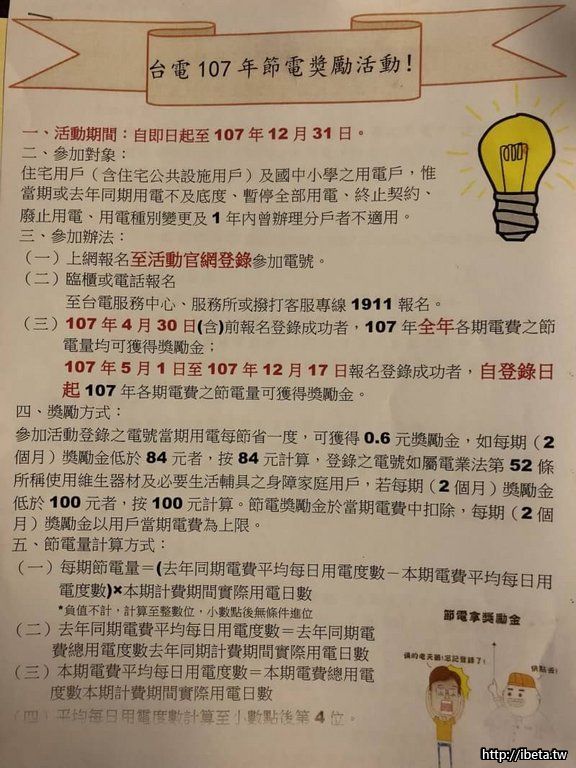 台電 107 年節電獎勵活動！
一、活動期間：自即日起至 107 年 12 月 31 日。
二、參加對象：
住宅用戶（含住宅公共設施用戶）及國中小學之用電戶，惟
當期或去年同期用電不及底度、暫停全部用電、終止契約、
廢止用電、用電種別變更及 1 年內曾辦理分戶者不適用。
三、參加辦法：
（一）上網報名至活動官網登錄參加電號。
（二）臨櫃或電話報名
至台電服務中心、服務所或撥打客服專線 1911 報名。
（三）107 年 4 月 30 日(含)前報名登錄成功者，107 年全年各期電費之節
電量均可獲得獎勵金；
107 年 5 月 1 日至 107 年 12 月 17 日報名登錄成功者，自登錄日
起 107 年各期電費之節電量可獲得獎勵金。
四、獎勵方式：
參加活動登錄之電號當期用電每節省一度，可獲得 0.6 元獎勵金，如每期（2
個月）獎勵金低於 84 元者，按 84 元計算，登錄之電號如屬電業法第 52 條
所稱使用維生器材及必要生活輔具之身障家庭用戶，若每期（2 個月）獎勵金
低於 100 元者，按 100 元計算。節電獎勵金於當期電費中扣除，每期（2 個
月）獎勵金以用戶當期電費為上限。
五、節電量計算方式：
（一）每期節電量＝(去年同期電費平均每日用電度數－本期電費平均每日用
電度數)×本期計費期間實際用電日數
*負值不計，計算至整數位，小數點後無條件進位
（二）去年同期電費平均每日用電度數＝去年同期電
費總用電度數去年同期計費期間實際用電日數
（三）本期電費平均每日用電度數＝本期電費總用電
度數本期計費期間實際用電日數
（四）平均每日用電度數計算至小數點後第 4 位。
節電拿獎勵金
偶的老天鵝!忘記登錄了!
快點去!
http://ibeta.tw